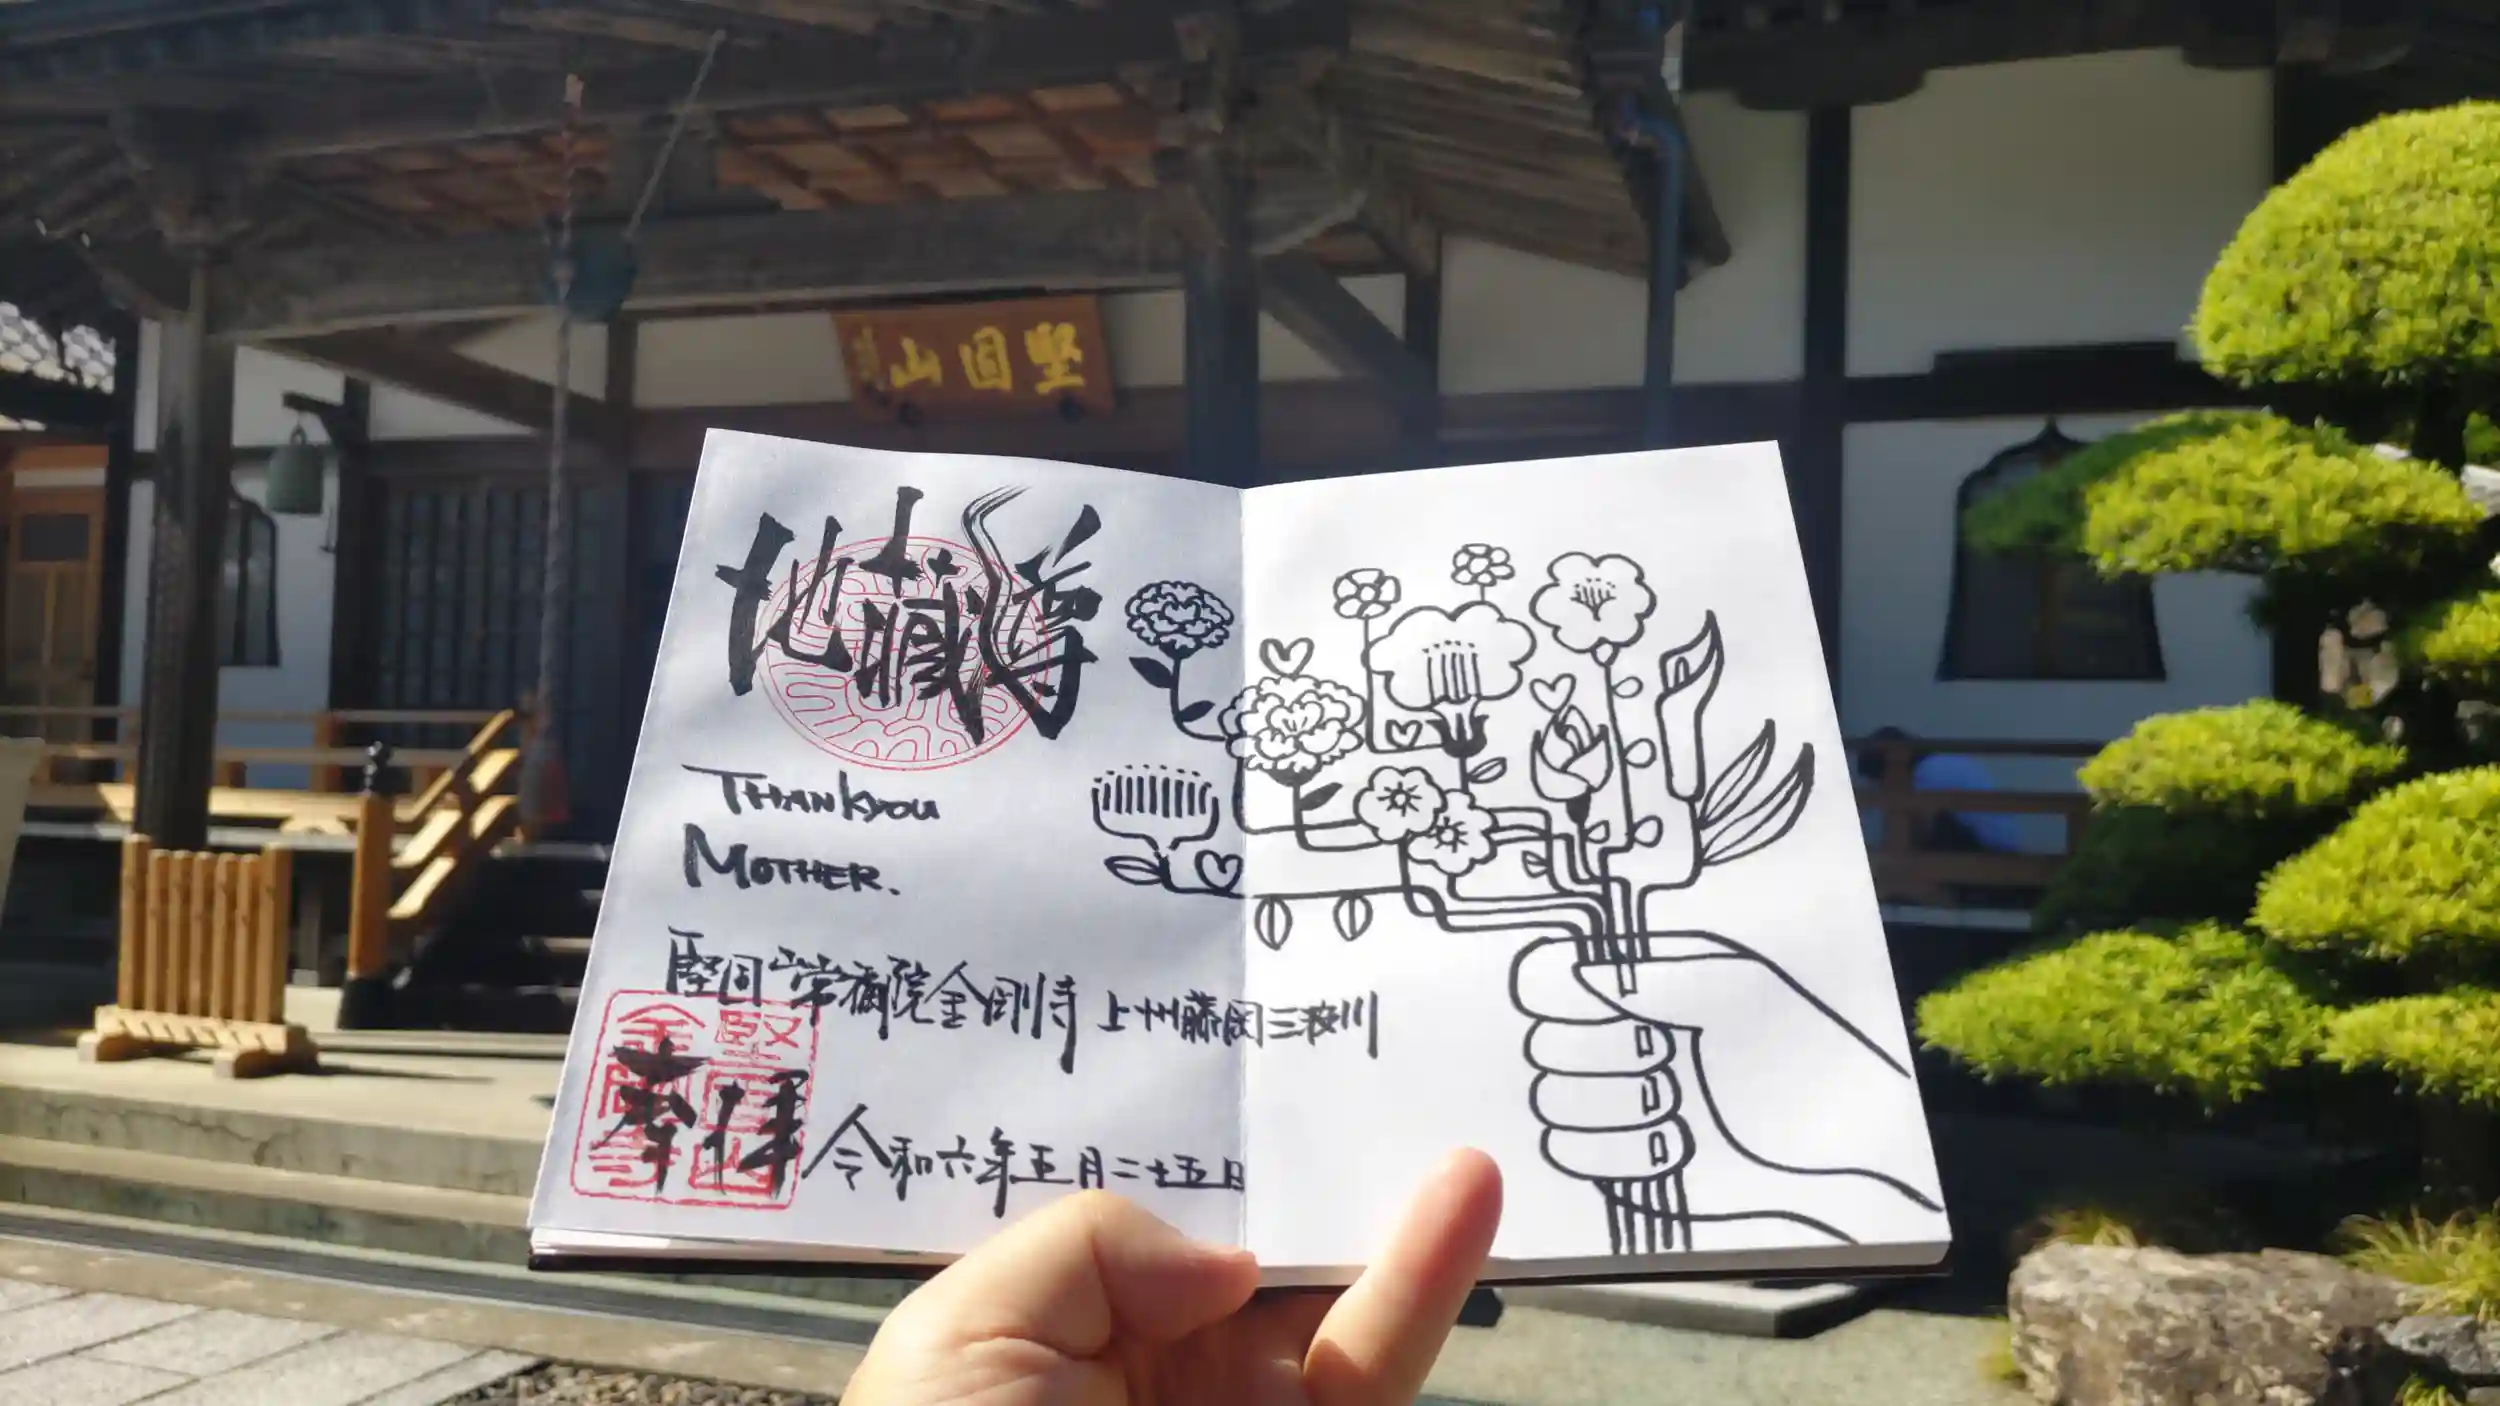 堅固山
地蔵尊
THANKyou
MOTHER.
堅固山常楽院金剛寺 上州藤岡三波川
奉拝 令和六年五月二十五日
堅固山
金剛寺